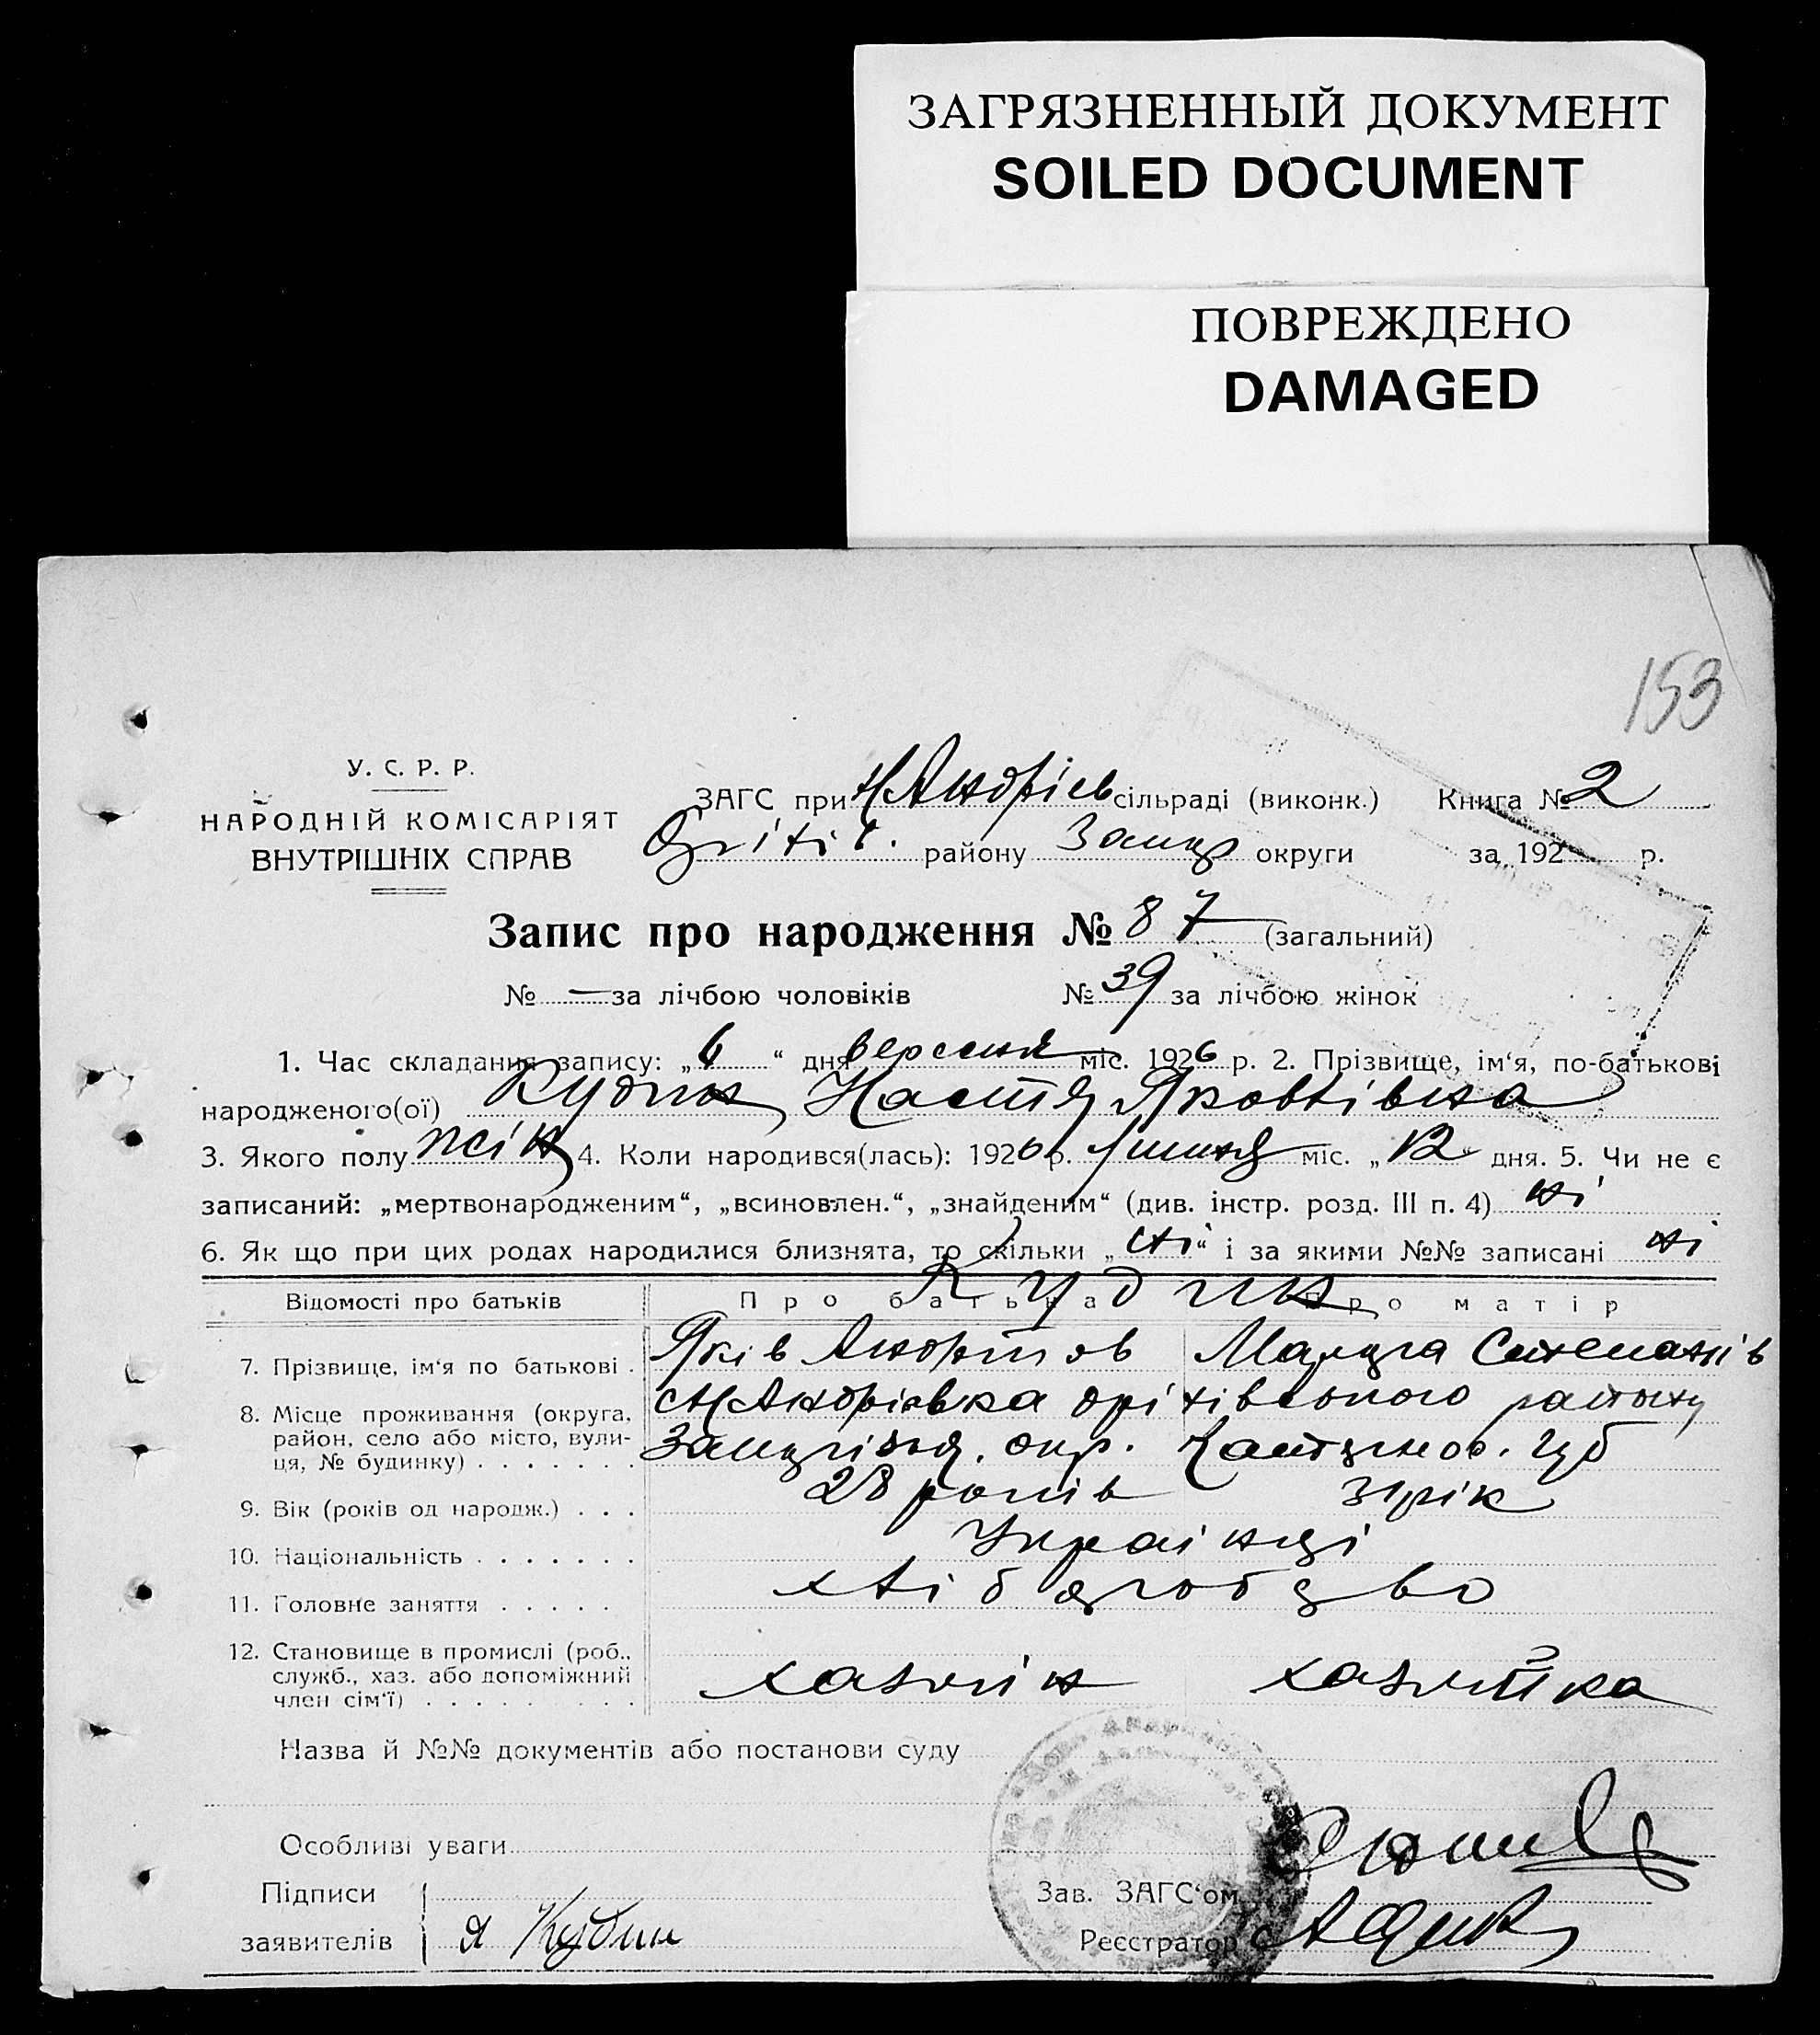 ЗАГРЯЗНЕННЫЙ ДОКУМЕНТ
SOILED DOCUMENT
ПОВРЕЖДЕНО
DAMAGED
153
У. С. Р. Р.
НАРОДНІЙ КОМІСАРІЯТ
ВНУТРІШНІХ СПРАВ
ЗАГС при НАндрієв сільраді (виконк.) Книга № 2
району Запор округи за 192 р.
Запис про народження № 87 (загальний)
№ — за лічбою чоловіків № 39 за лічбою жінок
1. Час складання запису: „6“ дня вересня міс. 1926 р. 2. Прізвище, ім'я, по-батькові
народженого(ої) Кудин Настя Яковлівна
3. Якого полу жін 4. Коли народився(лась): 1926 р. липня міс. „12“ дня. 5. Чи не є
записаний: „мертвонародженим“, „всиновлен.“, „знайденим“ (див. інстр. розд. III п. 4) ні
6. Як що при цих родах народилися близнята, то скільки „ні“ і за якими №№ записані ні
Відомості про батьків Про батька Про матір
Кудин
7. Прізвище, ім'я по батькові . Яків Марія Степанів
8. Місце проживання (округа, НАндрієвка оріхівського району
район, село або місто, вули-
ця, № будинку) . . . . . . . окр. губ
9. Вік (років од народж.) . . . 28 років 31 рік
10. Національність . . . . . . . Українці
11. Головне заняття . . . . . хліборобство
12. Становище в промислі (роб.,
служб., хаз. або допоміжний хазяїн хазяйка
член сім'ї) . . . . . . . . .
Назва й №№ документів або постанови суду
Особливі уваги
Підписи
Зав. ЗАГС'ом
заявителів Я Кудин Реєстратор